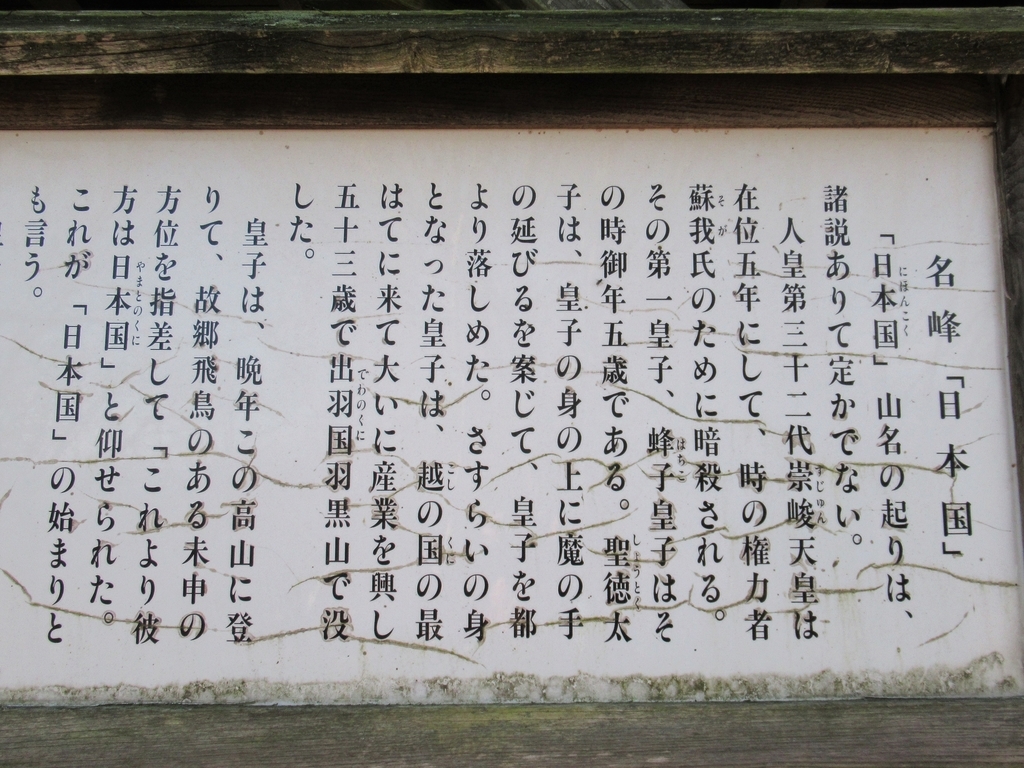 名峰「日本国」
「日本国」山名の起りは、
諸説ありて定かでない。
人皇第三十二代崇峻天皇は
在位五年にして、時の権力者
蘇我氏のために暗殺される。
その第一皇子、蜂子皇子はそ
の時御年五歳である。聖徳太
子は、皇子の身の上に魔の手
の延びるを案じて、皇子を都
より落しめた。さすらいの身
となった皇子は、越の国の最
はてに来て大いに産業を興し
五十三歳で出羽国羽黒山で没
した。
皇子は、晩年この高山に登
りて、故郷飛鳥のある未申の
方位を指差して「これより彼
方は日本国」と仰せられた。
これが「日本国」の始まりと
も言う。